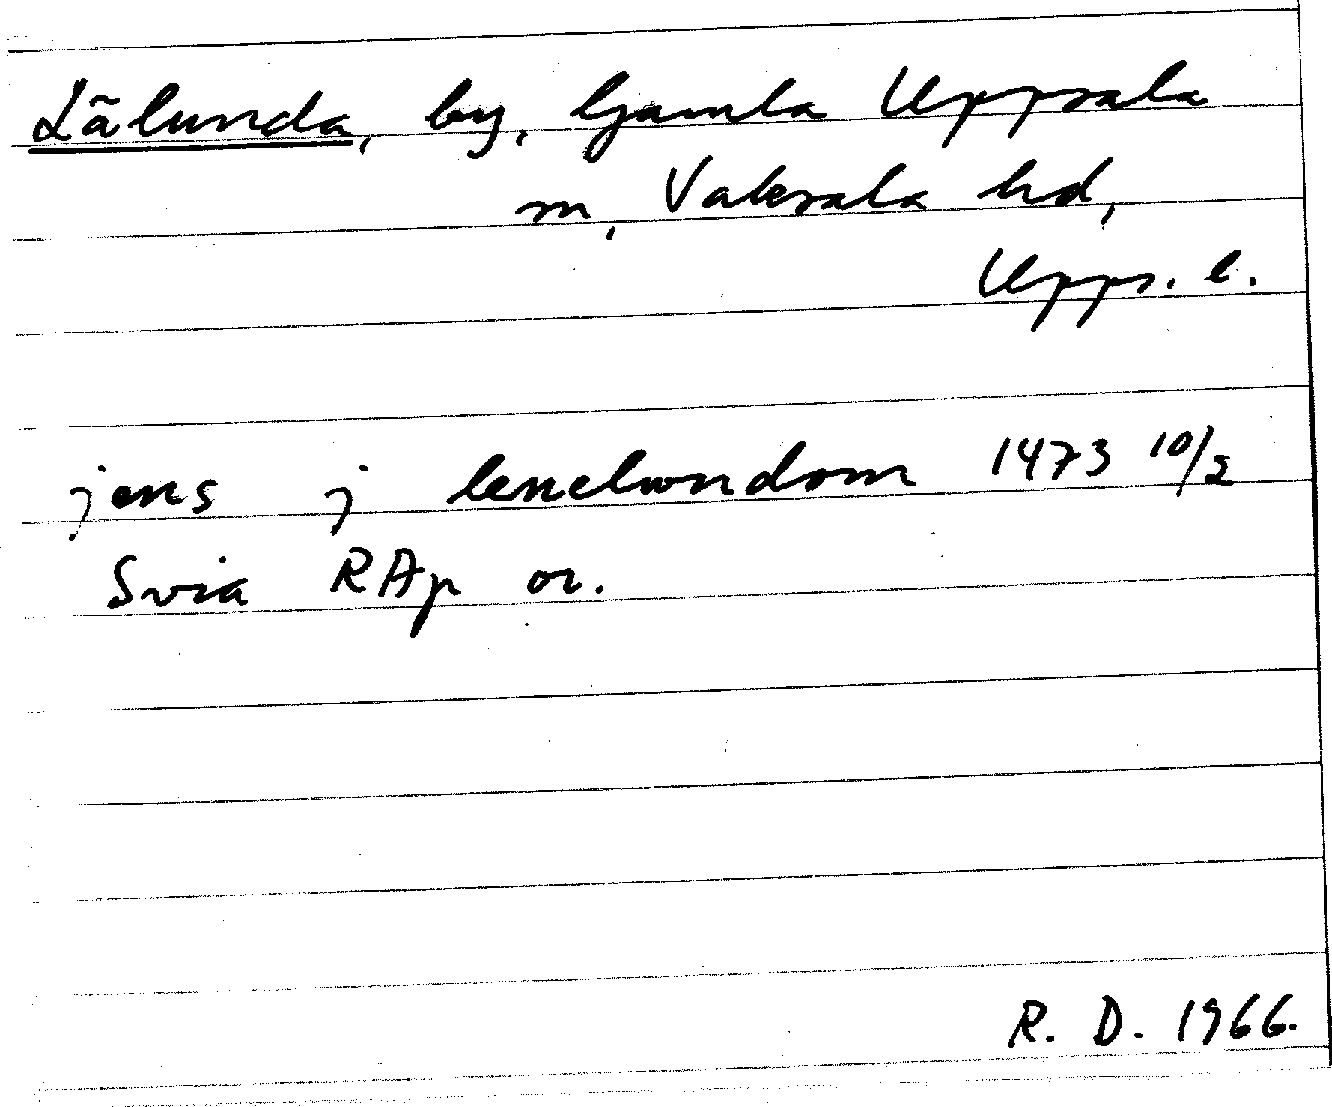 Lälunda, by, Gamla Uppsala
sn, Vaksala hd,
Upps. l.
jens j lenelwndom 1473 10/2
Svia RAp or.
R. D. 1966.